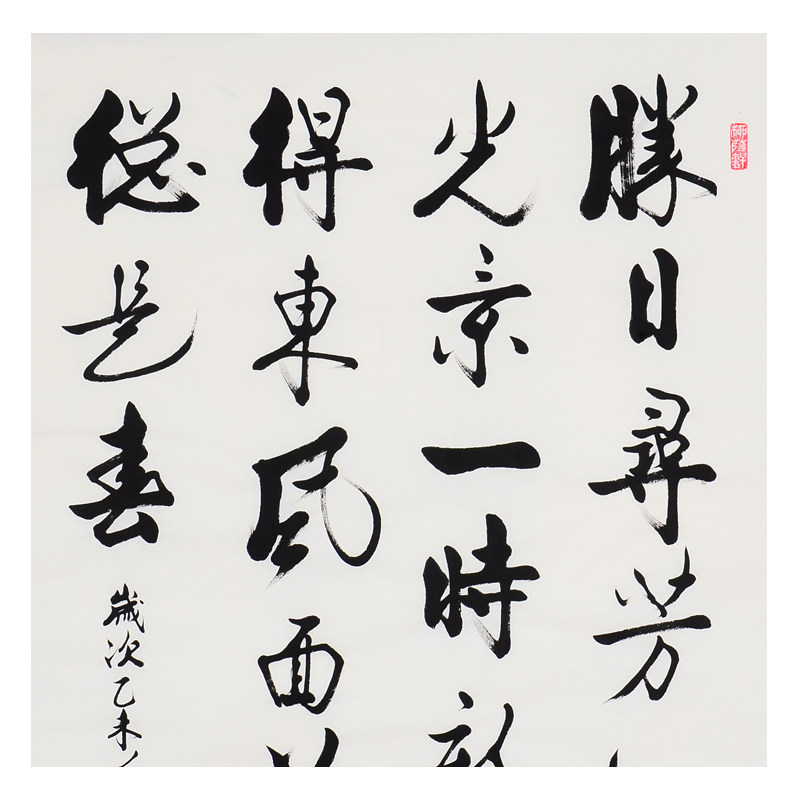 勝日尋芳
光景一時新
得東風面
總是春
歲次乙未